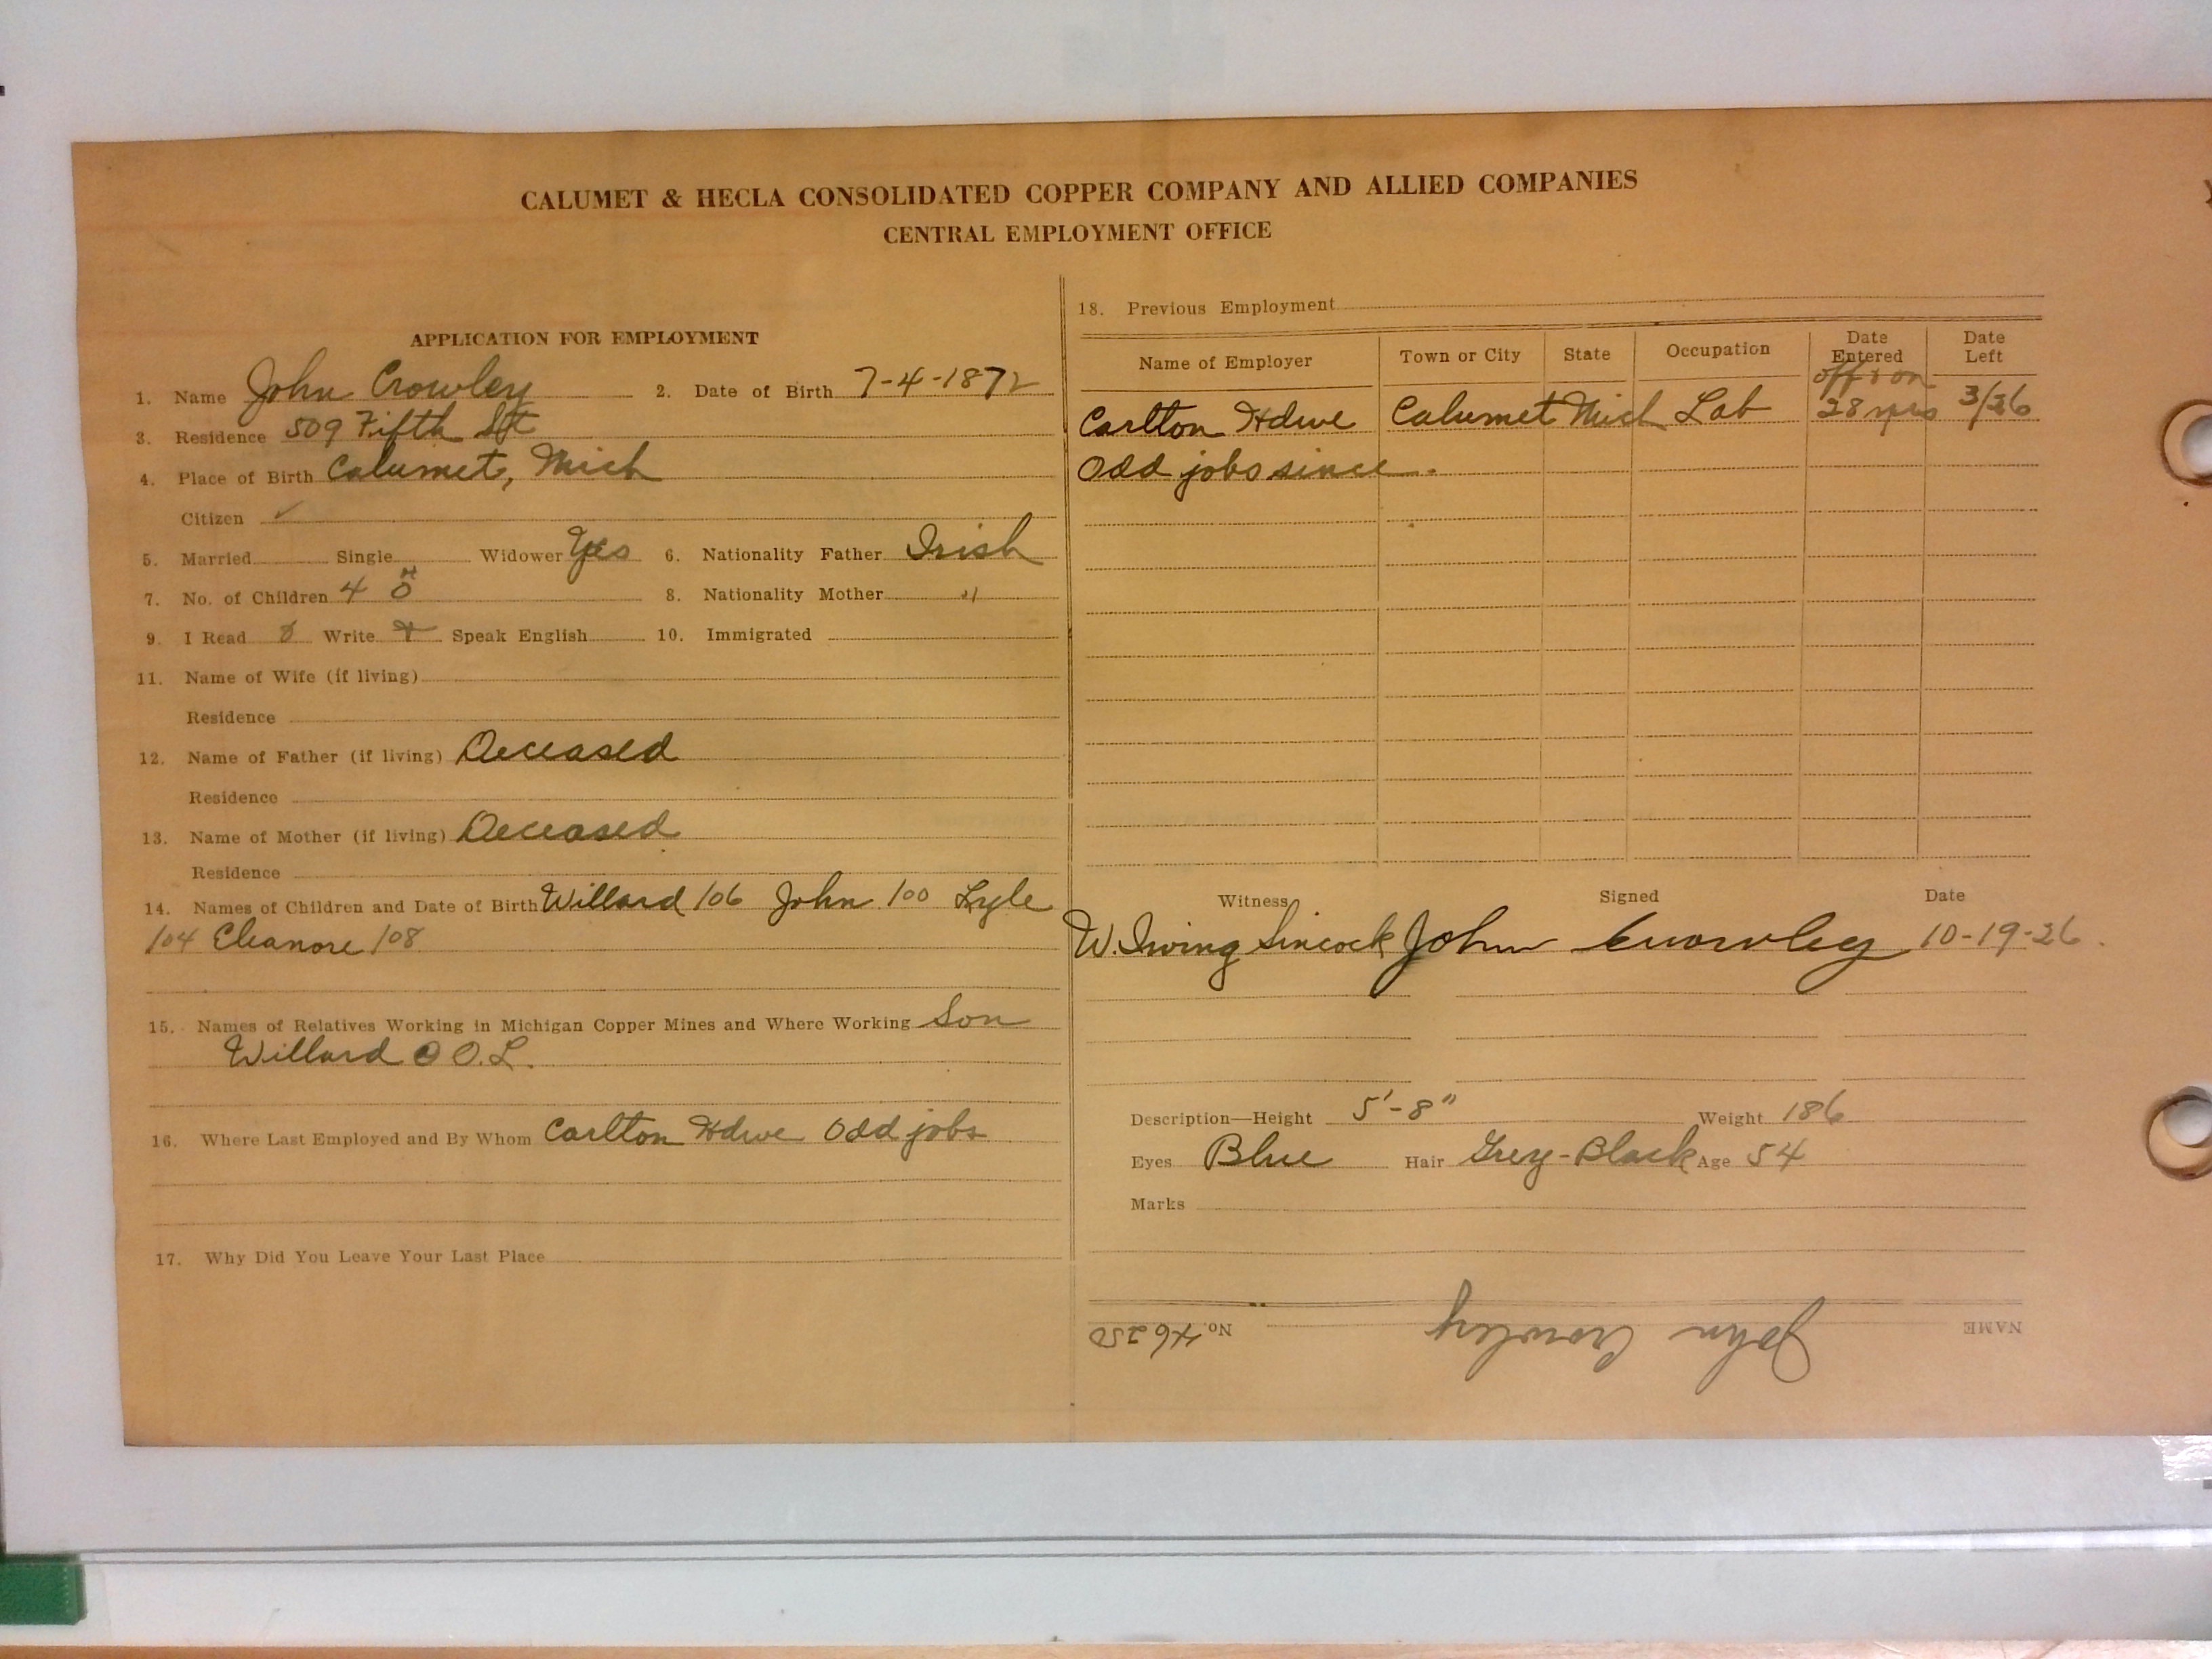 CALUMET & HECLA CONSOLIDATED COPPER COMPANY AND ALLIED COMPANIES
CENTRAL EMPLOYMENT OFFICE
APPLICATION FOR EMPLOYMENT
1. Name John Crowley 2. Date of Birth 7-4-1872
3. Residence 509 Fifth St
4. Place of Birth Calumet, Mich
Citizen ✓
5. Married Single Widower Yes 6. Nationality Father Irish
7. No. of Children 4 8. Nationality Mother "
9. I Read Write Speak English 10. Immigrated
11. Name of Wife (if living)
Residence
12. Name of Father (if living) Deceased
Residence
13. Name of Mother (if living) Deceased
Residence
14. Names of Children and Date of Birth Willard 106 John 100 Lyle
104 Eleanore 108
15. Names of Relatives Working in Michigan Copper Mines and Where Working Son
Willard O.L.
16. Where Last Employed and By Whom Carlton Hdwe Odd jobs
17. Why Did You Leave Your Last Place
18. Previous Employment
Name of Employer Town or City State Occupation Date Entered Date Left
off & on
Carlton Hdwe Calumet Mich Lab 28 yrs 3/26
Odd jobs since.
Witness Signed Date
W. Irving Sincock John Crowley 10-19-26.
Description—Height 5'-8" Weight 186
Eyes Blue Hair Grey-Black Age 54
Marks
NAME John Crowley No. 46250